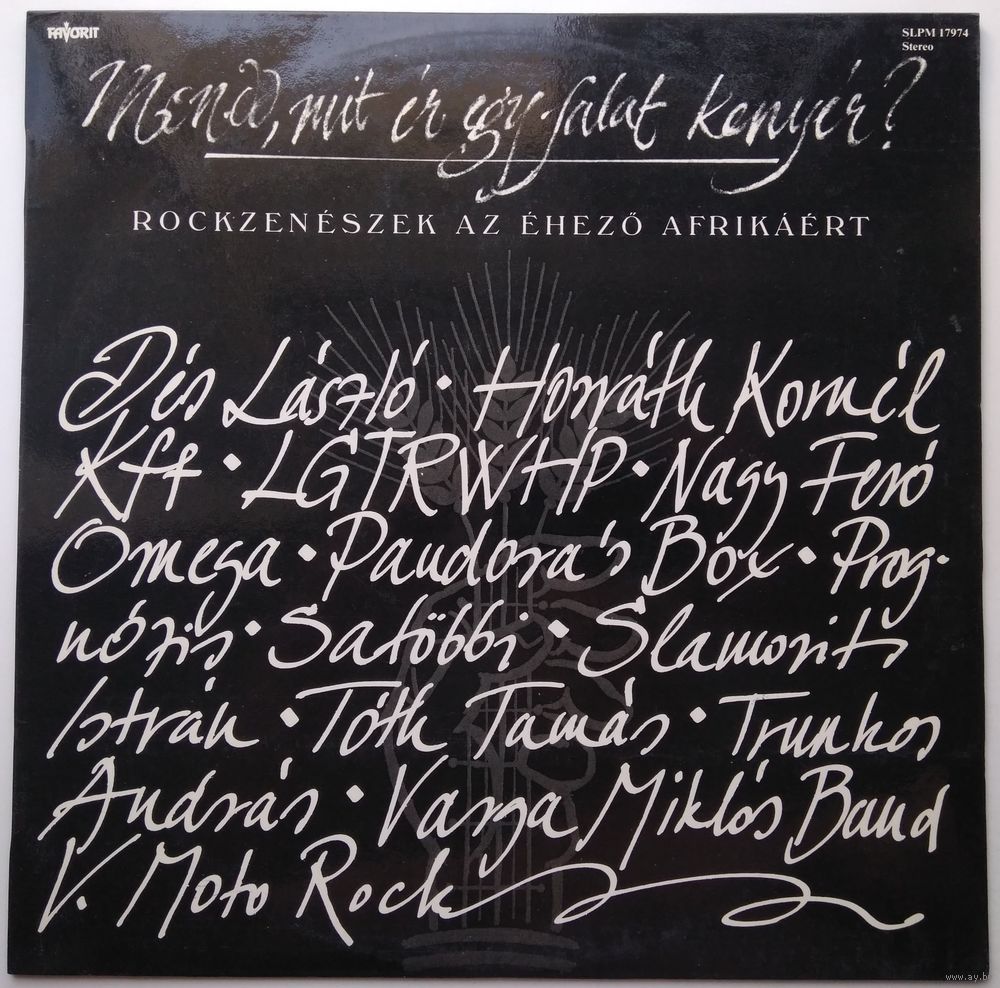 FAVORIT
SLPM 17974
Stereo
Mondd, mit ér egy falat kenyér?
ROCKZENÉSZEK AZ ÉHEZŐ AFRIKÁÉRT
Dés László • Horváth Kornél
Kft • LGTRWHP • Nagy Feró
Omega • Pandora's Box • Prog-
nózis • Satöbbi • Slamovits
István • Tóth Tamás • Trunkos
András • Varga Miklós Band
V. Moto Rock
www.ay.b